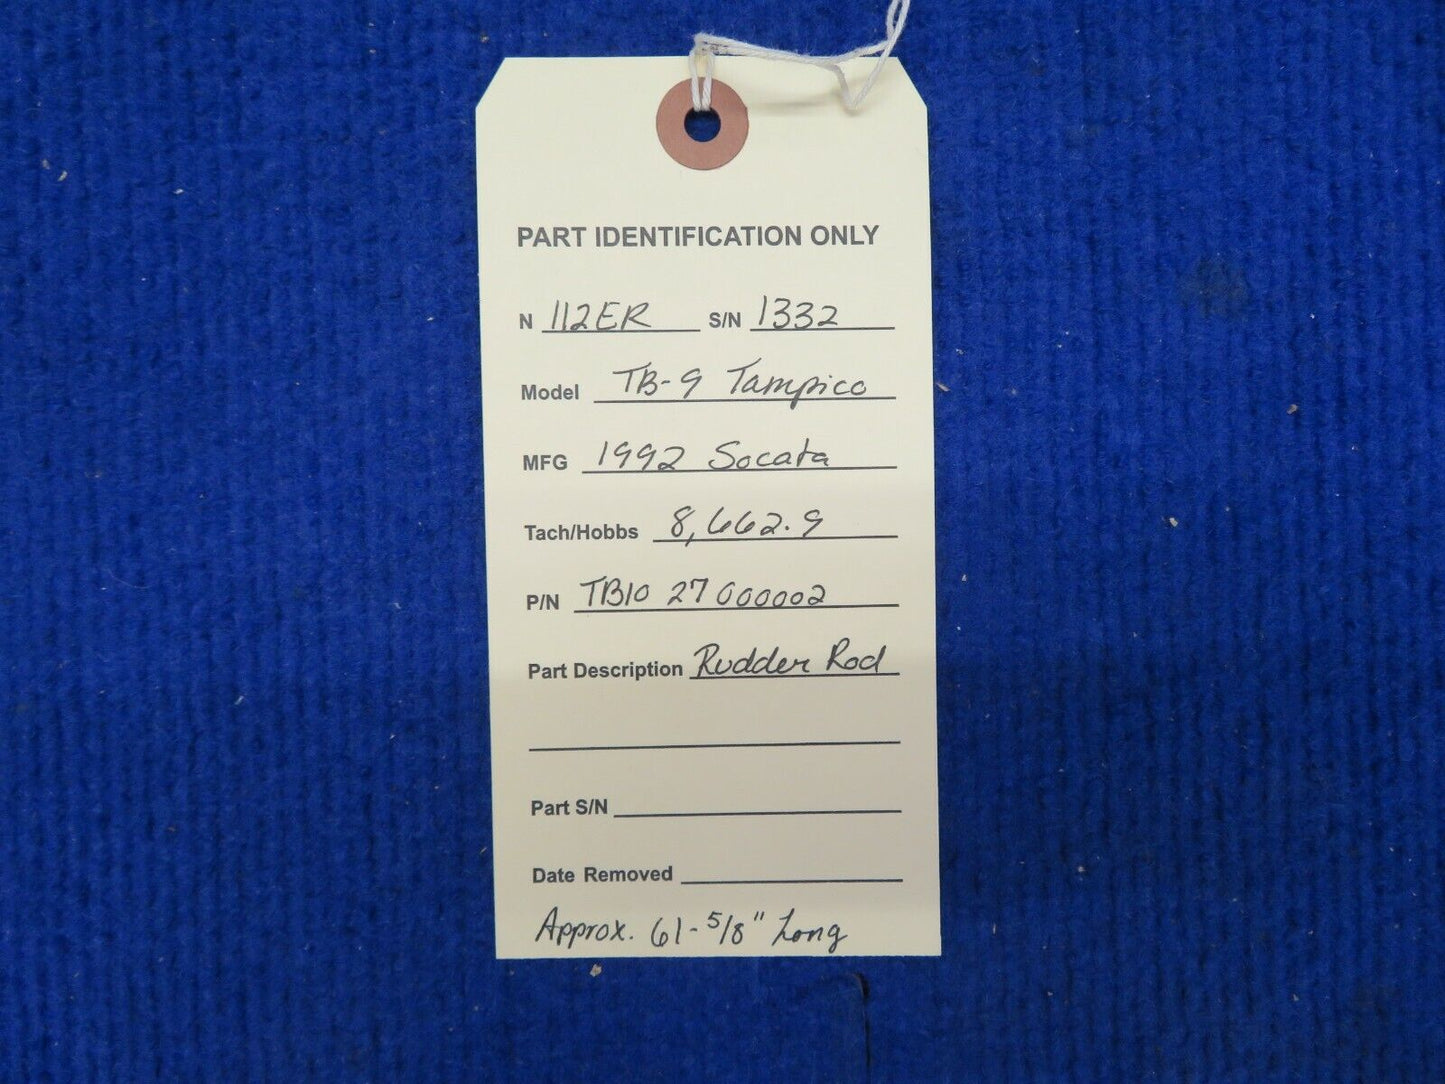 PART IDENTIFICATION ONLY
N 112ER S/N 1332
Model TB-9 Tampico
MFG 1992 Socata
Tach/Hobbs 8,662.9
P/N TB10 27 000002
Part Description Rudder Rod
Part S/N
Date Removed
Approx. 61-5/8" Long